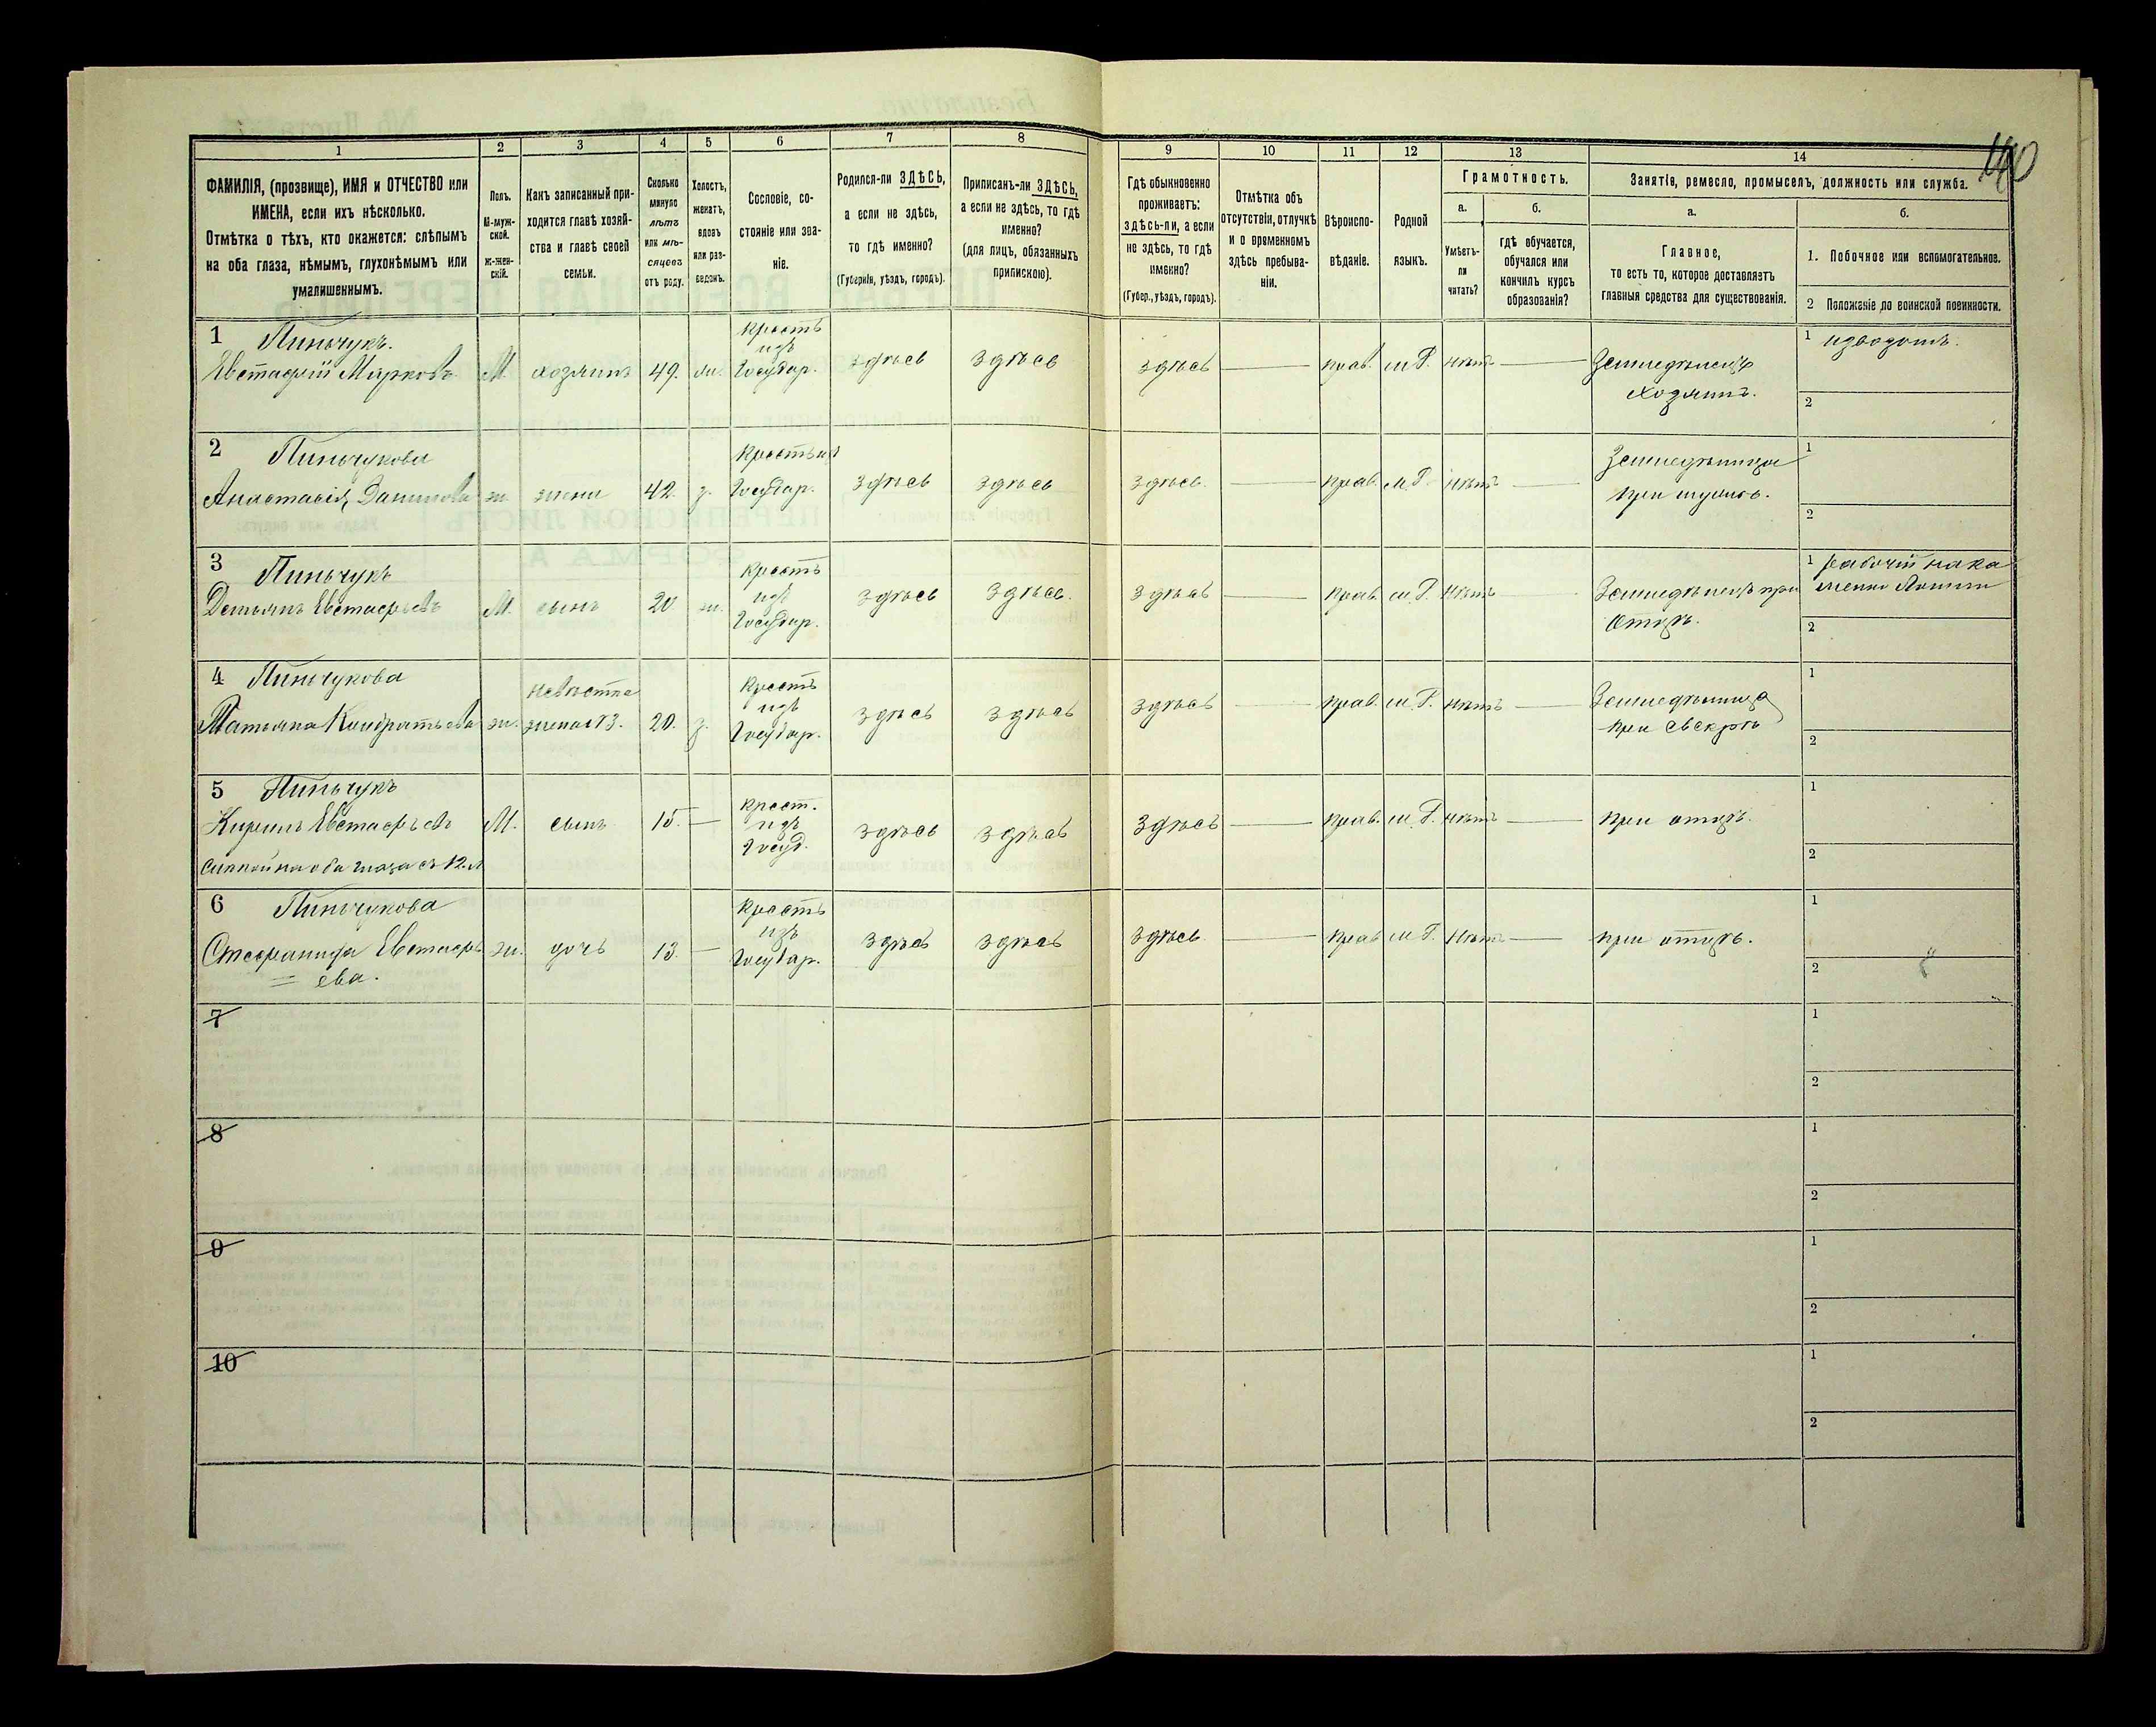 140
1 2 3 4 5 6 7 8 9 10 11 12 13 14
ФАМИЛІЯ, (прозвище), ИМЯ и ОТЧЕСТВО или
ИМЕНА, если ихъ нѣсколько.
Отмѣтка о тѣхъ, кто окажется: слѣпымъ
на оба глаза, нѣмымъ, глухонѣмымъ или
умалишеннымъ.
Полъ.
М-муж-
ской.
Ж-жен-
скій.
Какъ записанный при-
ходится главѣ хозяй-
ства и главѣ своей
семьи.
Сколько
минуло
лѣтъ
или мѣ-
сяцевъ
отъ роду.
Холостъ,
женатъ,
вдовъ
или раз-
веденъ.
Сословіе, со-
стояніе или зва-
ніе.
Родился-ли ЗДѢСЬ,
а если не здѣсь,
то гдѣ именно?
(Губернія, уѣздъ, городъ).
Приписанъ-ли ЗДѢСЬ,
а если не здѣсь, то гдѣ
именно?
(для лицъ, обязанныхъ
припискою).
Гдѣ обыкновенно
проживаетъ:
здѣсь-ли, а если
не здѣсь, то гдѣ
именно?
(Губер., уѣздъ, городъ).
Отмѣтка объ
отсутствіи, отлучкѣ
и о временномъ
здѣсь пребыва-
ніи.
Вѣроиспо-
вѣданіе.
Родной
языкъ.
Грамотность.
а.
Умѣетъ-
ли
читать?
б.
гдѣ обучается,
обучался или
кончилъ курсъ
образованія?
Занятіе, ремесло, промыселъ, должность или служба.
а.
Главное,
то есть то, которое доставляетъ
главныя средства для существованія.
б.
1. Побочное или вспомогательное.
2 Положаніе по воинской повинности.
1 Пиньчукъ.
Евстафій Марковъ М. хозяинъ 49. ж. Крестъ изъ Государ. здѣсь здѣсь здѣсь прав. м.Р. нѣтъ Земледѣлецъ хозяинъ.
1 извозомъ.
2
2 Пиньчукова
Анастасія Данилова ж жена 42. з. Крестьян Государ. здѣсь здѣсь здѣсь. прав. м.Р. нѣтъ Земледѣлица при мужѣ.
1
2
3 Пиньчукъ
Демьянъ Евстафьевъ М. сынъ 20 ж. Крестъ изъ Государ. здѣсь здѣсь. здѣсь прав. м.Р. нѣтъ Земледѣлецъ при отцѣ.
1 рабочій на ка
2
4 Пиньчукова
Татьяна Кондратьева ж. невѣстка жена №3. 20. з. Крестъ изъ Государ. здѣсь здѣсь здѣсь прав. м.Р. нѣтъ Земледѣлица при свекрѣ
1
2
5 Пиньчукъ
Кирилъ Евстафьевъ М. сынъ 15. Крест. изъ Госуд. здѣсь здѣсь здѣсь прав. м.Р. нѣтъ при отцѣ.
слѣпой на оба глаза съ 12. л
1
2
6 Пиньчукова
Стефанида Евстафь ж. дочь 13. Крестъ изъ Государ. здѣсь здѣсь здѣсь прав м.Р. нѣтъ при отцѣ.
= ева.
1
2
7
1
2
8
1
2
9
1
2
10
1
2